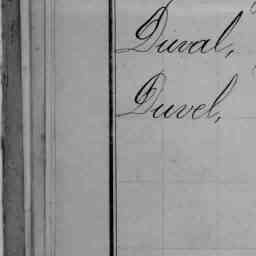 Duval,
Duvel,